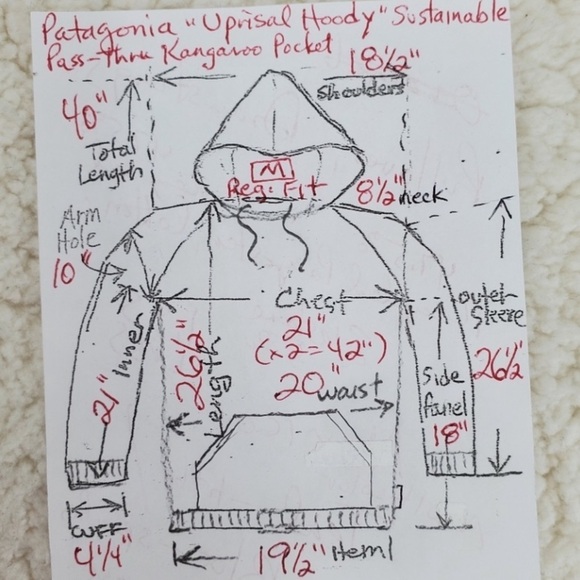 Patagonia "Uprisal Hoody" Sustainable
Pass-Thru Kangaroo Pocket
18½"
Shoulders
40"
Total
Length
M
Reg. Fit
8½" neck
Arm
Hole
10"
Chest
21"
(x2=42")
20" waist
outer
Sleeve
26½"
inner
21"
26½"
Length
Side
Panel
18"
CUFF
4¼"
19½" Hem